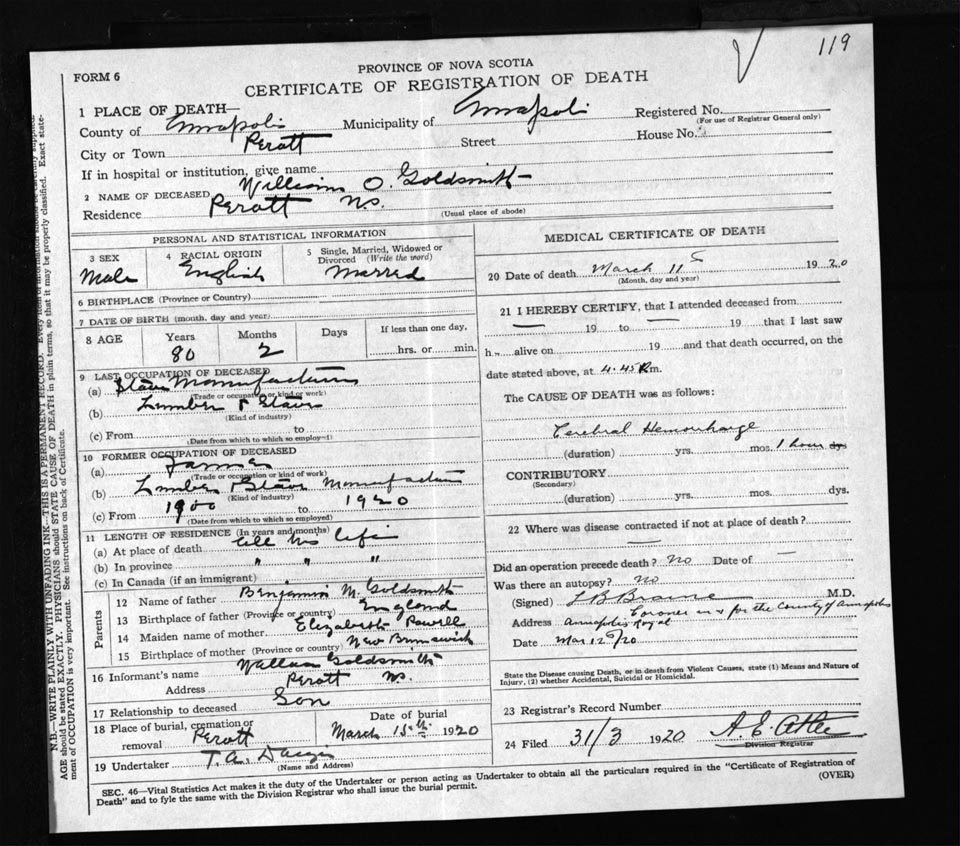 119
FORM 6
PROVINCE OF NOVA SCOTIA
CERTIFICATE OF REGISTRATION OF DEATH
1 PLACE OF DEATH—
County of Annapolis Municipality of Annapolis Registered No.
(For use of Registrar General only)
City or Town Perott Street House No.
If in hospital or institution, give name
2 NAME OF DECEASED William O. Goldsmith
Residence Perott N.S.
(Usual place of abode)
PERSONAL AND STATISTICAL INFORMATION
3 SEX 4 RACIAL ORIGIN 5 Single, Married, Widowed or Divorced (Write the word)
Male English Married
6 BIRTHPLACE (Province or Country)
7 DATE OF BIRTH (month, day and year)
8 AGE Years Months Days If less than one day,
80 2 hrs. or min.
9 LAST OCCUPATION OF DECEASED
(a) Stave Manufacturer
(Trade or occupation or kind of work)
(b) Lumber & Stave
(Kind of industry)
(c) From to
(Date from which to which so employed)
10 FORMER OCCUPATION OF DECEASED
(a) Farmer
(Trade or occupation or kind of work)
(b) Lumber & Stave Manufacturer
(Kind of industry)
(c) From 1900 to 1920
(Date from which to which so employed)
11 LENGTH OF RESIDENCE (In years and months)
(a) At place of death all his life
(b) In province " " "
(c) In Canada (if an immigrant)
Parents
12 Name of father Benjamin M. Goldsmith
13 Birthplace of father (Province or country) England
14 Maiden name of mother Elizabeth Powell
15 Birthplace of mother (Province or country) New Brunswick
16 Informant's name William Goldsmith
Address Perott N.S.
17 Relationship to deceased Son
18 Place of burial, cremation or removal Perott
Date of burial
March 13th 1920
19 Undertaker T. A.
(Name and Address)
MEDICAL CERTIFICATE OF DEATH
20 Date of death March 11 1920
(Month, day and year)
21 I HEREBY CERTIFY, that I attended deceased from
— 19 to — 19 that I last saw
h alive on 19 and that death occurred, on the
date stated above, at 4.45 P.m.
The CAUSE OF DEATH was as follows:
Cerebral Hemorrhage
(duration) yrs. mos. 1 hour dys.
CONTRIBUTORY
(Secondary)
(duration) yrs. mos. dys.
22 Where was disease contracted if not at place of death?
—
Did an operation precede death? No Date of —
Was there an autopsy? No
(Signed) L B Braine M.D.
Coroner in & for the County of Annapolis
Address Annapolis Royal
Date Mar 12/20
State the Disease causing Death, or in death from Violent Causes, state (1) Means and Nature of
Injury, (2) whether Accidental, Suicidal or Homicidal.
23 Registrar's Record Number
24 Filed 31/3 1920 A. E. Atlee
Division Registrar
SEC. 46—Vital Statistics Act makes it the duty of the Undertaker or person acting as Undertaker to obtain all the particulars required in the "Certificate of Registration of
Death" and to fyle the same with the Division Registrar who shall issue the burial permit.
(OVER)
N.B.—WRITE PLAINLY WITH UNFADING INK—THIS IS A PERMANENT RECORD. Every item of information should be carefully supplied.
AGE should be stated EXACTLY. PHYSICIANS should STATE CAUSE OF DEATH in plain terms, so that it may be properly classified. Exact statement
of OCCUPATION is very important. See instructions on back of Certificate.